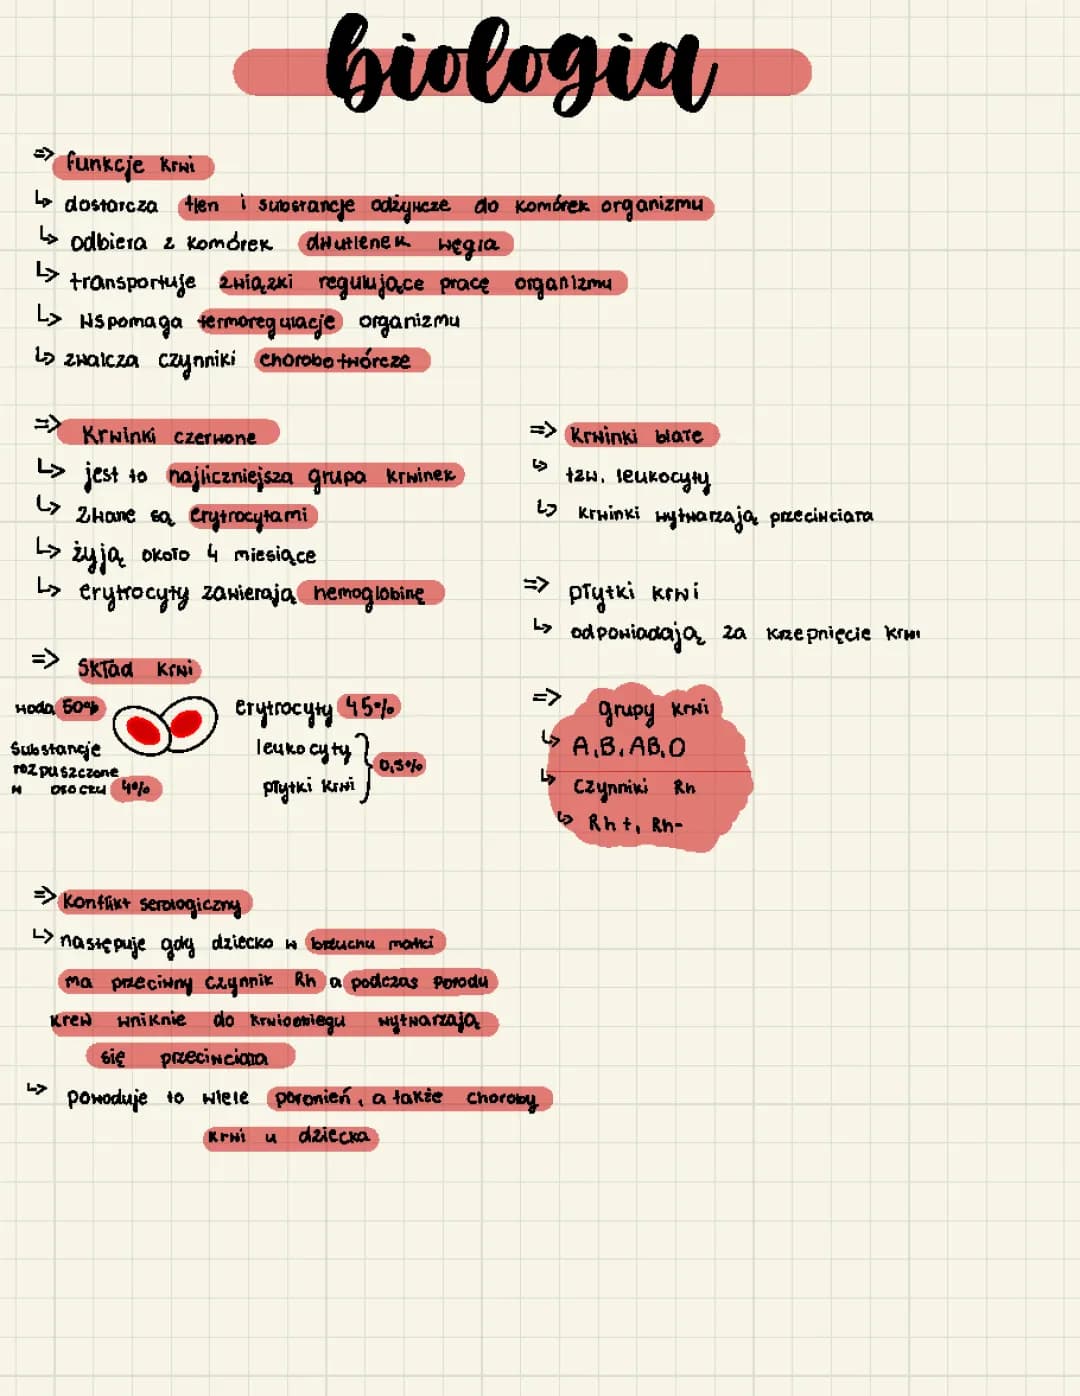 biologia
=> funkcje krwi
↳ dostarcza tlen i substancje odżywcze do komórek organizmu
↳ odbiera z komórek dwutlenek węgla
↳ transportuje związki regulujące pracę organizmu
↳ wspomaga termoregulacje organizmu
↳ zwalcza czynniki chorobotwórcze
=> Krwinki czerwone
↳ jest to najliczniejsza grupa krwinek
↳ zwane są erytrocytami
↳ żyją około 4 miesiące
↳ erytrocyty zawierają hemoglobinę
=> krwinki białe
↳ tzw. leukocyty
↳ krwinki wytwarzają przeciwciała
=> płytki krwi
↳ odpowiadają za krzepnięcie krwi
=> skład krwi
woda 50%
substancje
rozpuszczone
w osoczu 4%
erytrocyty 45%
leukocyty
płytki krwi } 0,5%
=> grupy krwi
↳ A, B, AB, O
↳ czynniki Rh
↳ Rh+, Rh-
=> konflikt serologiczny
↳ następuje gdy dziecko w brzuchu matki
ma przeciwny czynnik Rh a podczas porodu
krew wniknie do krwiobiegu wytwarzają
się przeciwciała
↳ powoduje to wiele poronień, a także choroby
krwi u dziecka